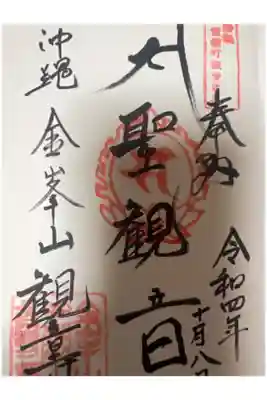 奉拝
令和四年
十月八日
大聖観音
沖縄
金峯山観音寺